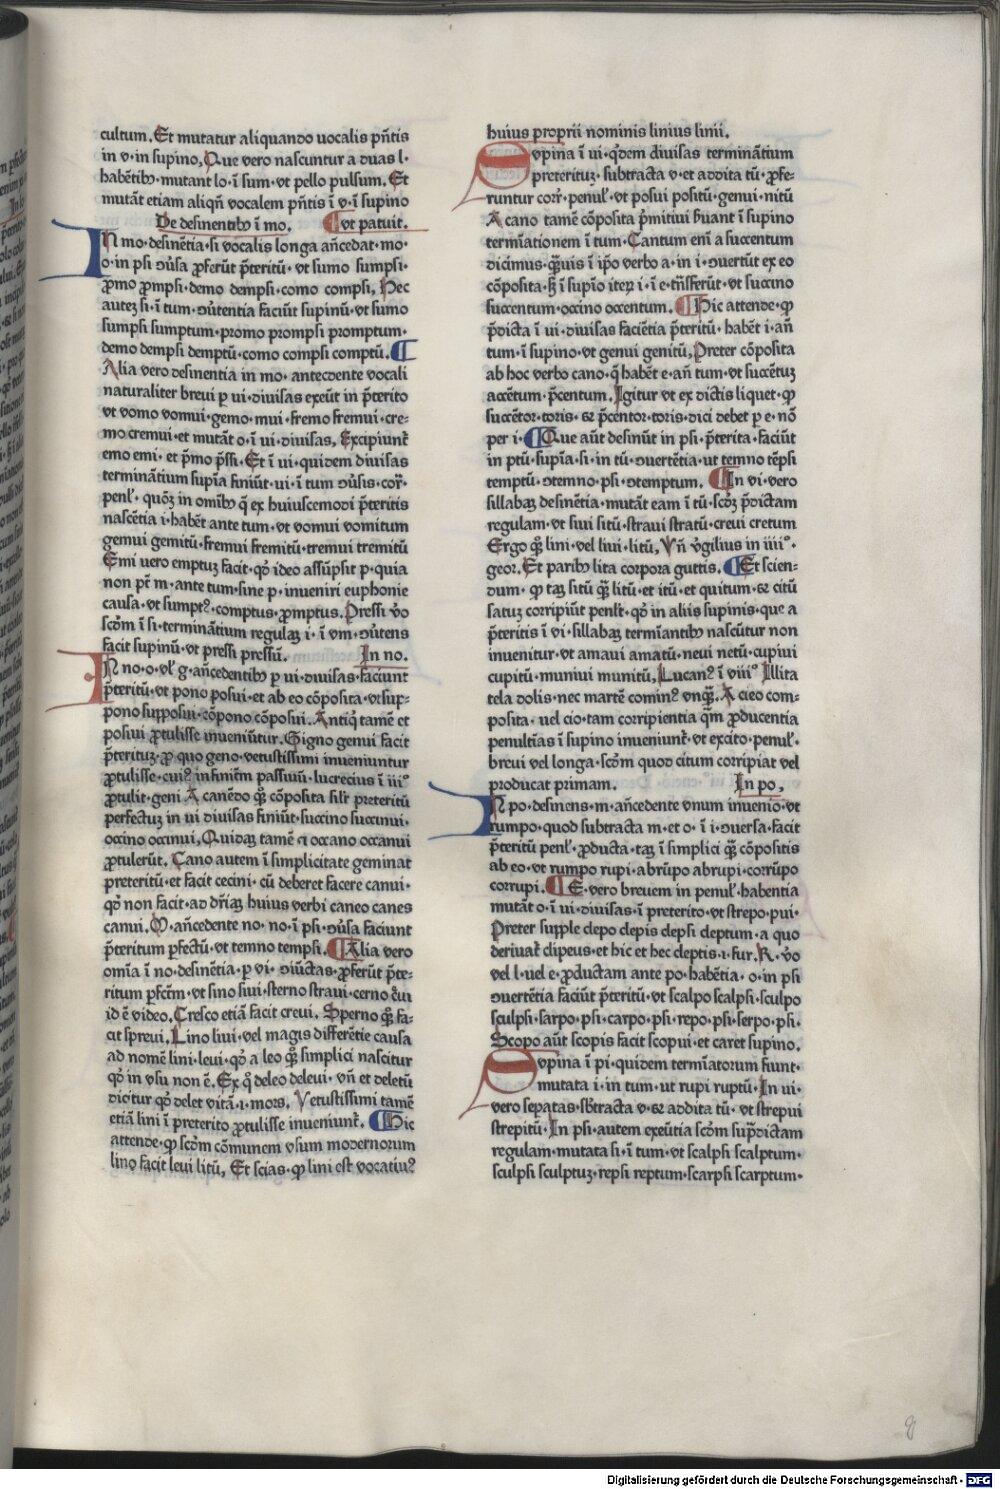 cultum. Et mutatur aliquando uocalis p̄ñtis
in v·in supino, Que vero nascuntur a duas l·
habētibꝫ·mutant lo·ī sum·vt pello pulsum. Et
mutāt etiam aliqñ vocalem p̄ñtis ī v·ī supino
De desinentibꝫ ī mo. ¶ vt patuit.
IN mo·desinētia·si vocalis longa añcedat·mo·
o·in psi ꝯuersa ꝓferūt p̄teritū·vt sumo sumpsi·
ꝓmo ꝓmpsi·demo dempsi·como compsi, Hec
autez si·ī tum·ꝯuertentia faciūt supinū·vt sumo
sumpsi sumptum·promo prompsi promptum·
demo dempsi demptū·como compsi comptū. ¶
Alia vero desinentia in mo·antecedente vocali
naturaliter breui p ui·diuisas exeūt in p̄terito
vt vomo vomui·gemo·mui·fremo fremui·cre-
mo cremui·et mutāt o·ī ui·diuisas, Excipiunt᷑
emo emi·et p̄mo p̄ssi·Et ī ui·quidem diuisas
terminātium supīa finiūt·ui·ī tum ꝯuersis·cor̄·
penł·quoꝫ in omibꝫ q̄ ex huiuscemodi p̄teritis
nascētia i·habēt ante tum·vt vomui vomitum
gemui gemitū·fremui fremitū·tremui tremitū
Emi uero emptuz facit·qđ ideo assūpsit p·quia
non pt̄ m·ante tum·sine p·inueniri euphonie
causa·vt sumptꝰ·comptus·ꝓmptus. Pressi v̊o
scđm ī si·terminātium regulaꝫ i·ī vm·ꝯuertens
facit supinū·vt pressi pressū. In no.
IN no·o·vł g·añcedentibꝫ p ui·diuisas·faciunt
p̄teritū·vt pono posui·et ab eo cōposita·vt sup-
pono supposui·cōpono cōposui. Antiq̄ tamē et
posiui ꝓtulisse inueniūtur. Gigno genui facit
p̄terituꝫ·ꝓ quo geno·vetustissimi inueniuntur
ꝓtulisse·cuiꝰ infinitm̄ passiuū·lucrecius ī iiiº
ꝓtulit·geni A canēdo qꝫ cōposita silr̄ preteritū
perfectuꝫ in ui diuisas finiūt·succino succinui·
occino occinui, Quidaꝫ tamē ⁊ occano occanui
ꝓtulerūt. Cano autem ī simplicitate geminat
preteritū·et facit cecini·cū deberet facere canui·
qđ non facit·ad dr̄iaꝫ huius verbi caneo canes
canui. M·añcedente no·no·ī psi·ꝯuersa faciunt
p̄teritum ꝑfectū·vt temno tempsi. ¶ Alia vero
omīa ī no·desinētia·p vi·ꝯiūctas·ꝓferūt p̄te-
ritum ꝑfctm̄·vt sino siui·sterno straui·cerno c̄ui
id ē video. Cresco etiā facit creui. Sperno qꝫ fa-
cit spreui. Lino liui·vel magis differētie causa
ad nomē lini·leui·qđ a leo qꝫ simplici nascitur
qđ in vsu non ē. Ex q̊ deleo deleui·vñ et deletū
dicitur qđ delet vitā·i·mors. Vetustissimi tamē
etiā lini ī preterito ꝓtulisse inueniunt᷑. ¶ Hic
attende·ꝙ scđm cōmunem vsum modernorum
lino facit leui litū, Et scias·ꝙ lini est vocatiuꝰ
huius proprii nominis linius linii.
Supina ī ui·qđem diuisas terminātium
preterituꝫ·subtracta v·et addita tū·ꝓfe-
runtur cor̄·penuł·vt posui positū·genui·nitū
A cano tamē cōposita p̄mitiui ẜuant ī supino
terminationem ī tum·Cantum eni a succentum
dicimus·qꝫuis ī ipo verbo a·in i·ꝯuertūt ex eo
cōposita·sꝫ ī supīo iteꝝ i·ī e·tr̄nsferūt·vt succino
succentum·occino occentum. ¶ Hic attende·ꝙ
p̄dicta ī ui·diuisas faciētia p̄teritū·habēt i·añ
tum·ī supino·vt genui genitū, Preter cōposita
ab hoc verbo cano·q̄ habēt e·añ tum·vt succētuꝫ
accētum·p̄centum. Igitur vt ex dictis liquet·ꝙ
succētor·toris·⁊ p̄centor·toris·dici debet p e·nō
per i·¶ Que aūt desinūt in psi·p̄terita·faciūt
in ptū·supīa·si·in tū·ꝯuertētia·ut temno tēpsi
temptū·ꝯtemno·psi·ꝯtemptum. ¶ In vi·vero
sillabaꝫ desinētia·mutāt eam ī tū·scđꝫ p̄dictam
regulam·vt siui sitū·straui stratū·creui cretum
Ergo qꝫ lini·vel liui·litū, Vñ v̊gilius in iiiiº·
geor. Et paribꝫ lita corpora guttis. ¶ Et scien-
dum·ꝙ taꝫ sitū qꝫ litū·et itū·et quitum·⁊ citū
satuꝫ corripiūt penłt·qđ in aliis supinis·que a
p̄teritis ī vi·sillabaꝫ termīantibꝫ nascūtur non
inuenitur·vt amaui amatū·neui netū·cupiui
cupitū·muniui munitū, Lucanꝰ ī viiiº Illita
tela dolis·nec martē cominꝰ vnqꝫ. A cieo com-
posita·uel cio·tam corripientia qm̄ ꝓducentia
penultīas ī supino inueniunt᷑·vt excito·penuł·
breui vel longa·scđm quod citum corripiat vel
producat primam. In po,
IN po·desinens·m·añcedente vnum inuenio·vt
rumpo·quod subtracta m·et o·ī i·ꝯuersa·facit
p̄teritū penł·ꝓducta·taꝫ ī simplici qꝫ cōpositis
ab eo·vt rumpo rupi·abrūpo abrupi·corrūpo
corrupi. ¶ E·vero breuem in penuł·habentia
mutāt o·ī ui·diuisas·ī preterito·vt strepo·pui·
Preter supple clepo clepis clepsi cleptum·a quo
deriuat᷑ clipeus·et hic et hec cleptis·i·fur. R·v̊o
vel l·uel e·ꝓductam ante po·habētia·o·in psi
ꝯuertētia faciūt p̄teritū·vt scalpo scalpsi·sculpo
sculpsi·sarpo·psi·carpo·psi·repo·psi·serpo·psi·
Scopo aūt scopis facit scopui·et caret supino.
Supina ī pi·quidem termīatorum fiunt·
mutata i·in tum·ut rupi ruptū·In ui·
vero sepatas·sbtracta v·⁊ addita tū·vt strepui
strepitū·In psi·autem exeūtia scđm sup̄dictam
regulam·mutata si·ī tum·vt scalpsi scalptum·
sculpsi sculptuꝫ·repsi reptum·scarpsi scarptum·
8
Digitalisierung gefördert durch die Deutsche Forschungsgemeinschaft - DFG